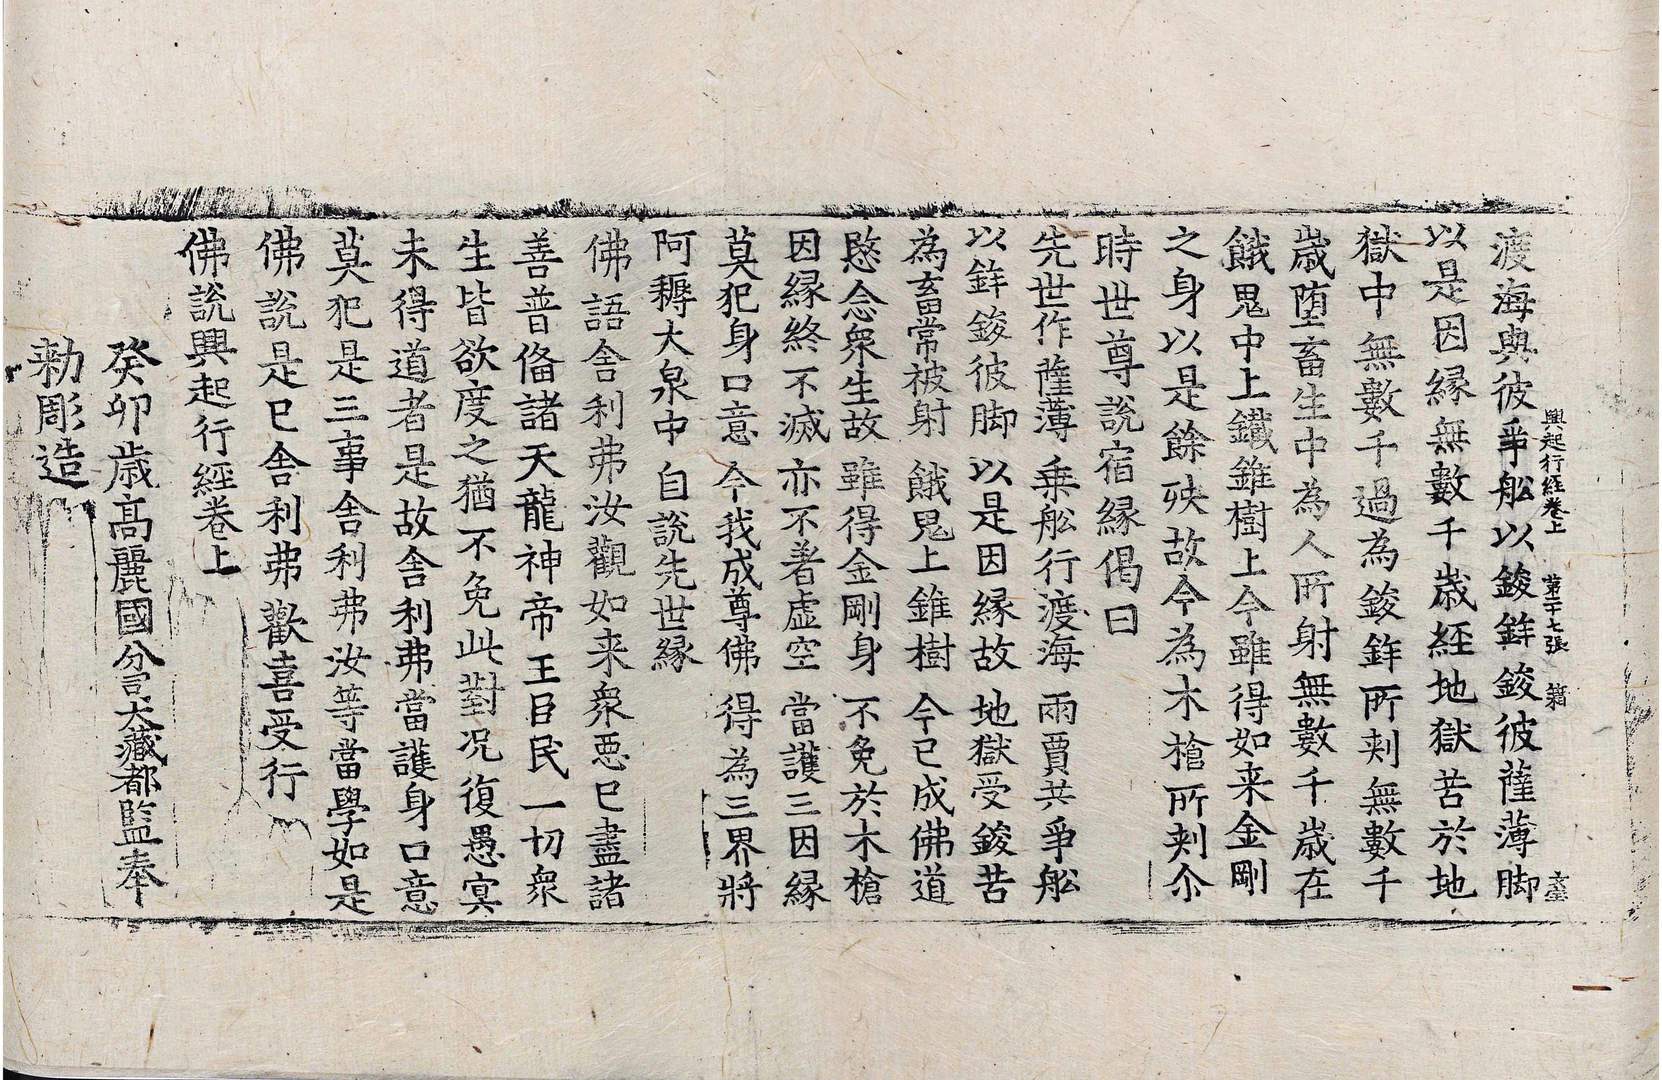 興起行経卷上 第二十七張 籍
渡海與彼爭舩以鋑鉾鋑彼薩薄脚
以是因縁無數千歳經地獄苦於地
獄中無數千過為鋑鉾所刾無數千
歳墮畜生中為人所射無數千歳在
餓鬼中上鐵錐樹上今雖得如来金剛
之身以是餘殃故今為木槍所刾尒
時世尊說宿緣偈曰
先世作薩薄 乗舩行渡海 兩賈共爭舩
以鉾鋑彼脚 以是因縁故 地獄受鋑苦
為畜常被射 餓鬼上錐樹 今已成佛道
愍念衆生故 雖得金剛身 不免於木槍
因縁終不滅 亦不著虚空 當護三因縁
莫犯身口意 今我成尊佛 得為三界將
阿耨大泉中 自說先世縁
佛語舍利弗汝觀如来衆惡已盡諸
善普俻諸天龍神帝王臣民一切衆
生皆欲度之猶不免此對况復愚冥
未得道者是故舍利弗當護身口意
莫犯是三事舍利弗汝等當學如是
佛說是已舍利弗歡喜受行
佛說興起行經卷上
癸卯歳高麗國分司大藏都監奉
勅彫造